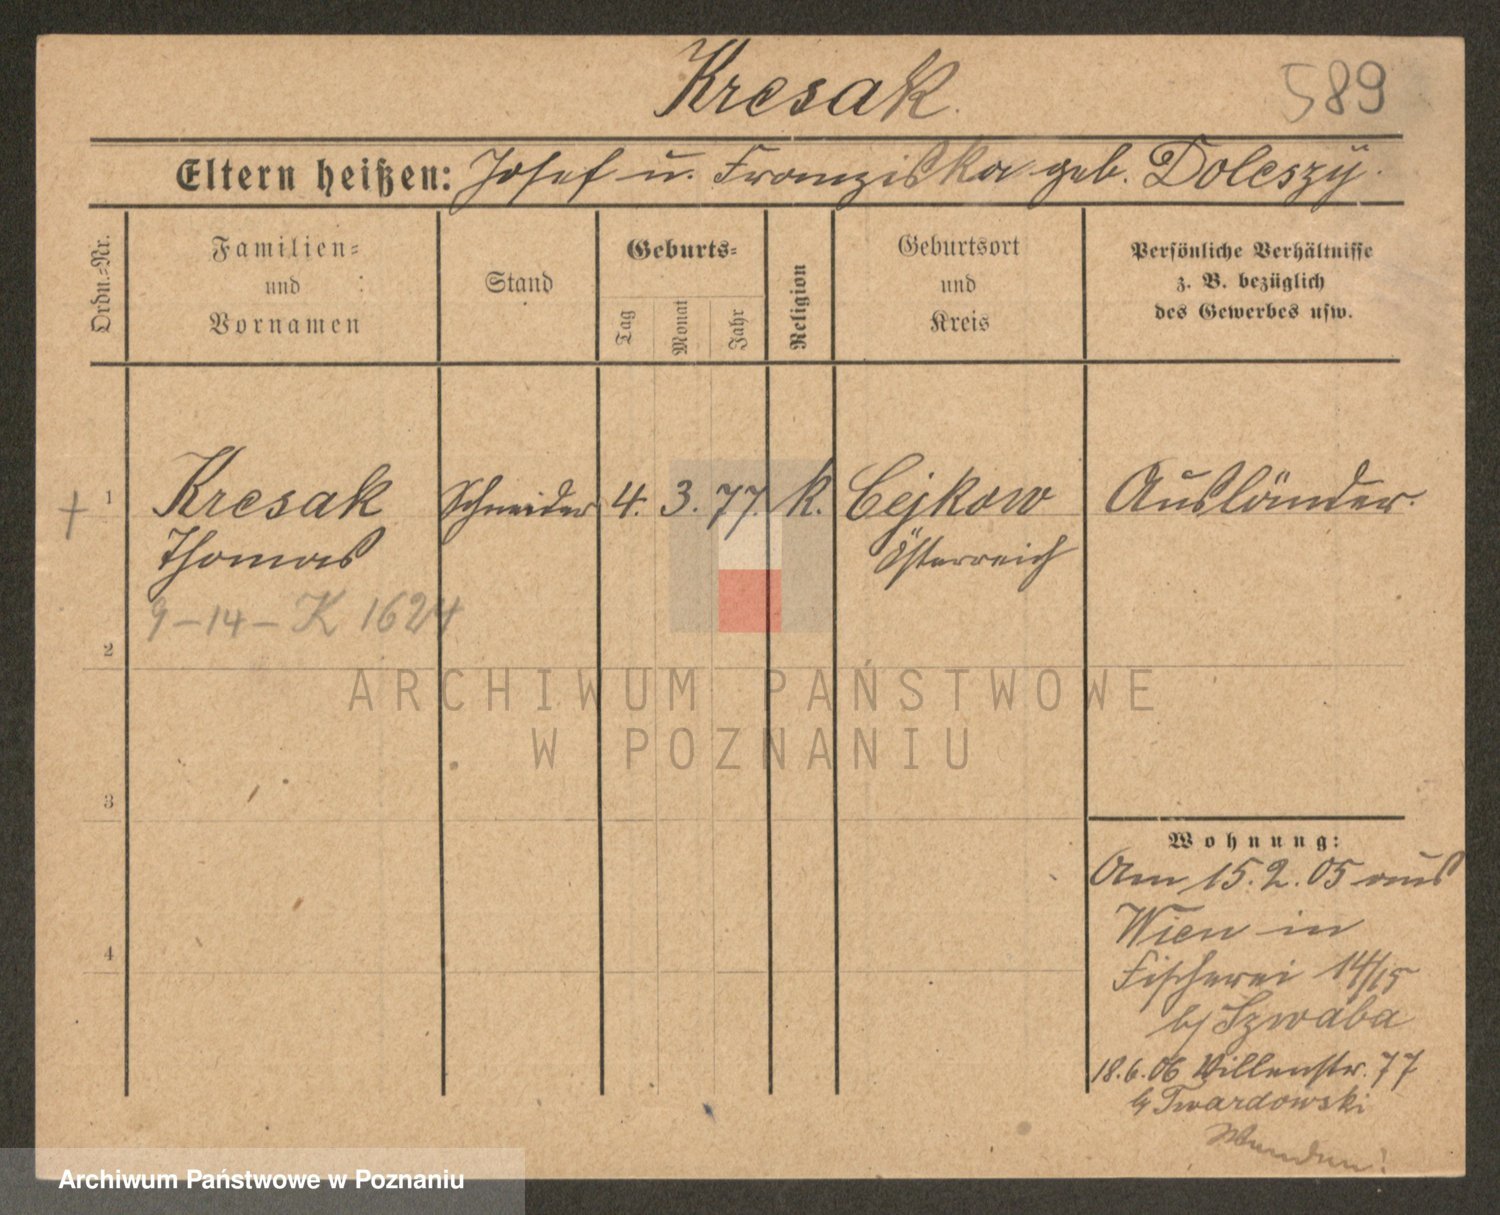 Kresak.
589
Eltern heißen: Josef u. Franziska geb. Doleszÿ.
Ordn.-Nr.
Familien-
und
Vornamen
Stand
Geburts-
Tag
Monat
Jahr
Religion
Geburtsort
und
Kreis
Persönliche Verhältnisse
z. B. bezüglich
des Gewerbes usw.
+ 1 Kresak Schneider 4. 3. 77. k. Cejkow Ausländer.
Thomas Österreich
9-14-K 1624
2
ARCHIWUM PAŃSTWOWE
W POZNANIU
3
Wohnung:
Am 15.2.05 aus
Wien in
4
Fischerei 14/15
b/ Szwaba
18.6.06 77
b/ Twardowski
Archiwum Państwowe w Poznaniu